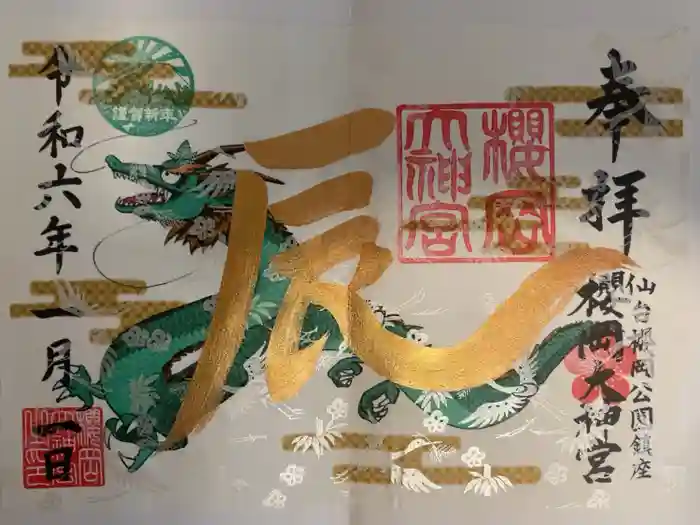 奉拝
仙台櫻岡公園鎮座
櫻岡大神宮
櫻岡
大神宮
辰
謹賀新年
令和六年一月一日
櫻岡
大神宮